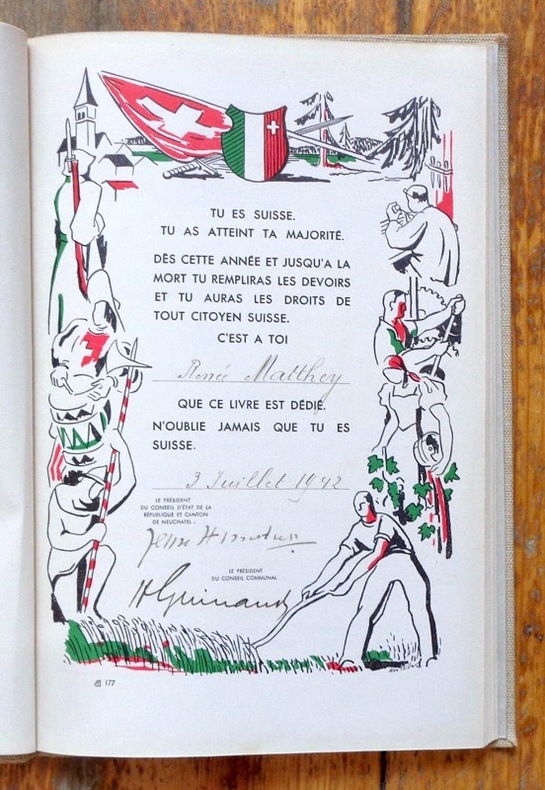 TU ES SUISSE.
TU AS ATTEINT TA MAJORITÉ.
DÈS CETTE ANNÉE ET JUSQU'A LA
MORT TU REMPLIRAS LES DEVOIRS
ET TU AURAS LES DROITS DE
TOUT CITOYEN SUISSE.
C'EST A TOI
Renée Matthey
QUE CE LIVRE EST DÉDIÉ.
N'OUBLIE JAMAIS QUE TU ES
SUISSE.
3 Juillet 1942
LE PRÉSIDENT
DU CONSEIL D'ÉTAT DE LA
RÉPUBLIQUE ET CANTON
DE NEUCHATEL
LE PRÉSIDENT
DU CONSEIL COMMUNAL
H Guinand
177